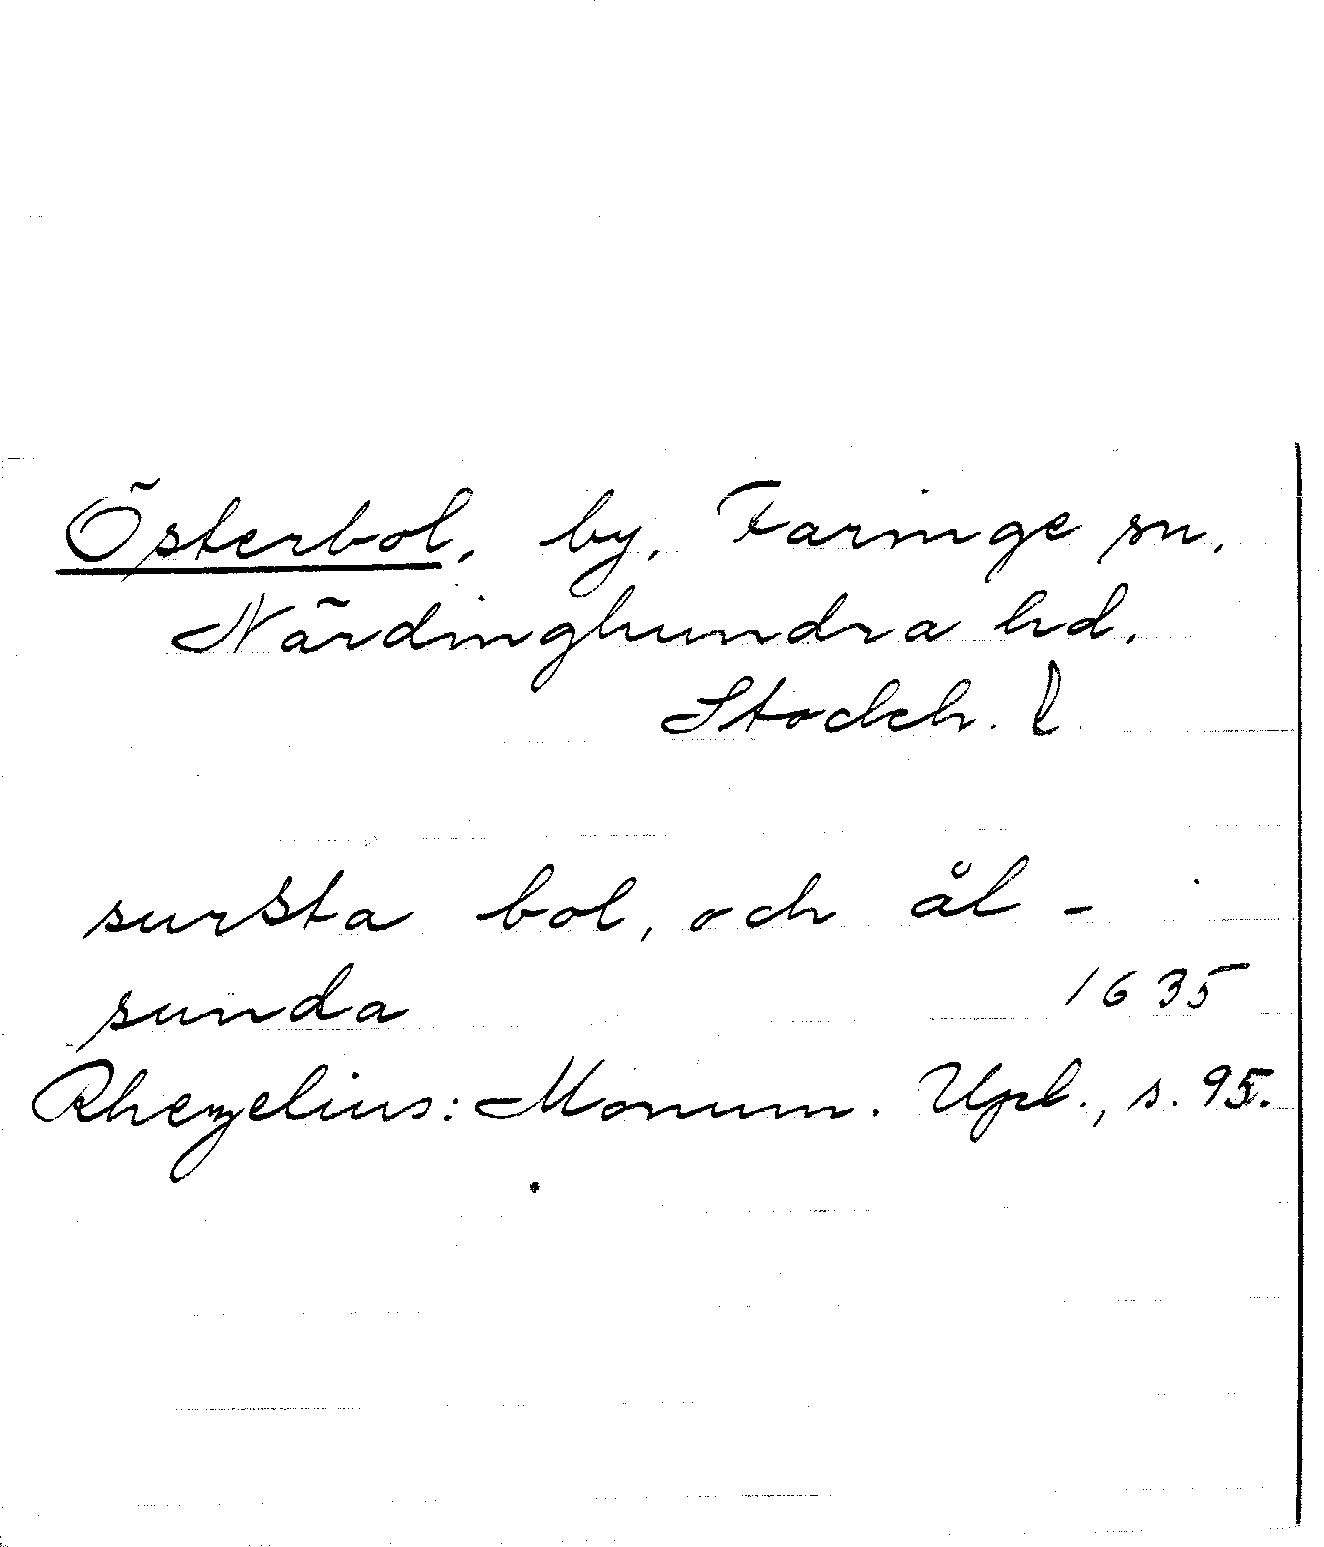 Österbol, by, Faringe sn,
Närdinghundra hd.
Stockh. l
sursta bol, och ål-
sunda 1635
Rhezelius: Monum. Upl., s. 95.